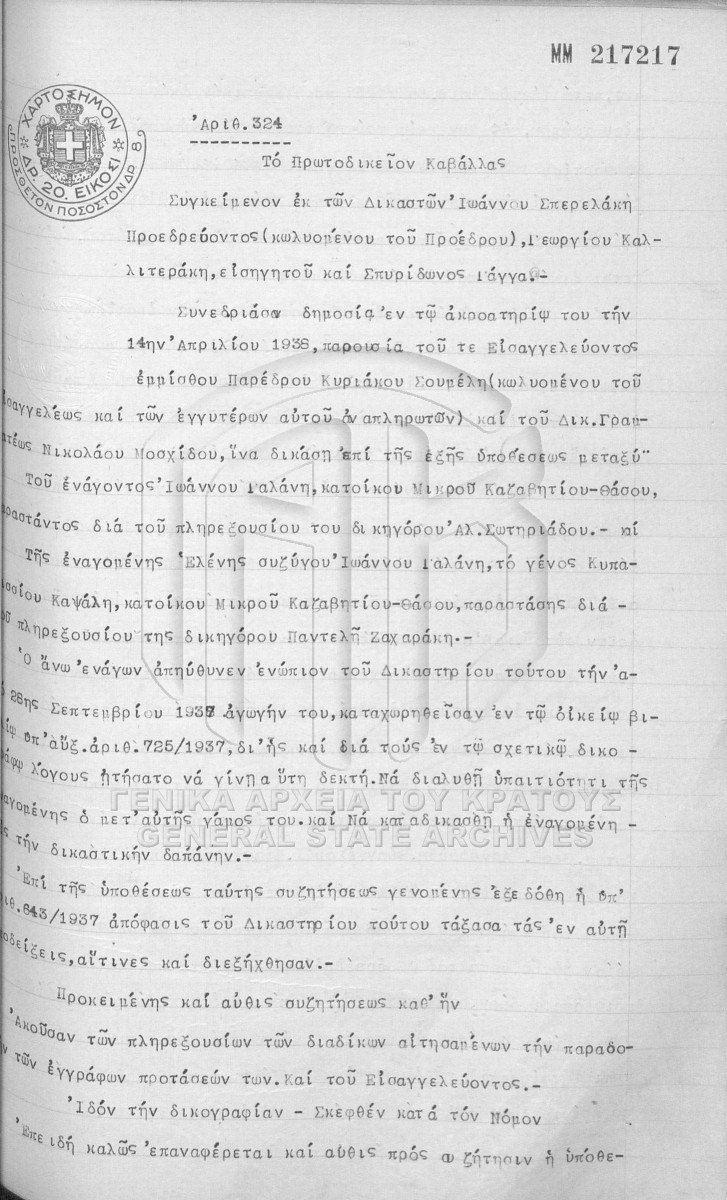 ΜΜ 217217
ΧΑΡΤΟΣΗΜΟΝ
ΔΡ. 20. ΕΙΚΟΣΙ
ΠΡΟΣΘΕΤΟΝ ΠΟΣΟΣΤΟΝ ΔΡ. 8
Ἀριθ. 324
Τό Πρωτοδικεῖον Καβάλλας
Συγκείμενον ἐκ τῶν Δικαστῶν Ἰωάννου Σπερελάκη
Προεδρεύοντος(κωλυομένου τοῦ Προέδρου), Γεωργίου Καλ-
λιτεράκη, εἰσηγητοῦ καί Σπυρίδωνος Γάγγα.-
Συνεδριάσαν δημοσίᾳ ἐν τῷ ἀκροατηρίῳ του τήν
14ην Ἀπριλίου 1938, παρουσίᾳ τοῦ τε Εἰσαγγελεύοντος
ἐμμίσθου Παρέδρου Κυριάκου Σουμέλη(κωλυομένου τοῦ
ἰσαγγελέως καί τῶν ἐγγυτέρων αὐτοῦ ἀναπληρωτῶν) καί τοῦ Δικ.Γραμ-
ατέως Νικολάου Μοσχίδου, ἵνα δικάσῃ ἐπί τῆς ἑξῆς ὑποθέσεως μεταξύ"
Τοῦ ἐνάγοντος Ἰωάννου Γαλάνη, κατοίκου Μικροῦ Καζαβητίου-Θάσου,
αραστάντος διά τοῦ πληρεξουσίου του δικηγόρου Ἀλ.Σωτηριάδου.- καί
Τῆς ἐναγομένης Ἑλένης συζύγου Ἰωάννου Γαλάνη, τό γένος Κυπα-
ισσίου Καψάλη, κατοίκου Μικροῦ Καζαβητίου-Θάσου, παραστάσης διά -
οῦ πληρεξουσίου της δικηγόρου Παντελῆ Ζαχαράκη.-
Ὁ ἄνω ἐνάγων ἀπηύθυνεν ἐνώπιον τοῦ Δικαστηρίου τούτου τήν ἀ-
ό 28ης Σεπτεμβρίου 1937 ἀγωγήν του, καταχωρηθεῖσαν ἐν τῷ οἰκείῳ βι-
ίῳ ὑπ' αὔξ.ἀριθ.725/1937, δι' ἧς καί διά τούς ἐν τῷ σχετικῷ δικο -
ράφῳ λόγους ᾐτήσατο νά γίνῃ αὕτη δεκτή. Νά διαλυθῇ ὑπαιτιότητι τῆς
ναγομένης ὁ μετ' αὐτῆς γάμος του. καί Νά καταδικασθῇ ἡ ἐναγομένη -
ἰς τήν δικαστικήν δαπάνην.-
Ἐπί τῆς ὑποθέσεως ταύτης συζητήσεως γενομένης ἐξεδόθη ἡ ὑπ'
ριθ.643/1937 ἀπόφασις τοῦ Δικαστηρίου τούτου τάξασα τάς ἐν αὐτῇ
ποδείξεις, αἵτινες καί διεξήχθησαν.-
Προκειμένης καί αὖθις συζητήσεως καθ' ἥν
Ἀκοῦσαν τῶν πληρεξουσίων τῶν διαδίκων αἰτησαμένων τήν παραδο-
ήν τῶν ἐγγράφων προτάσεών των. Καί τοῦ Εἰσαγγελεύοντος.-
Ἰδόν τήν δικογραφίαν - Σκεφθέν κατά τόν Νόμον
Ἐπειδή καλῶς ἐπαναφέρεται καί αὖθις πρός συζήτησιν ἡ ὑπόθε-
ΓΕΝΙΚΑ ΑΡΧΕΙΑ ΤΟΥ ΚΡΑΤΟΥΣ
GENERAL STATE ARCHIVES